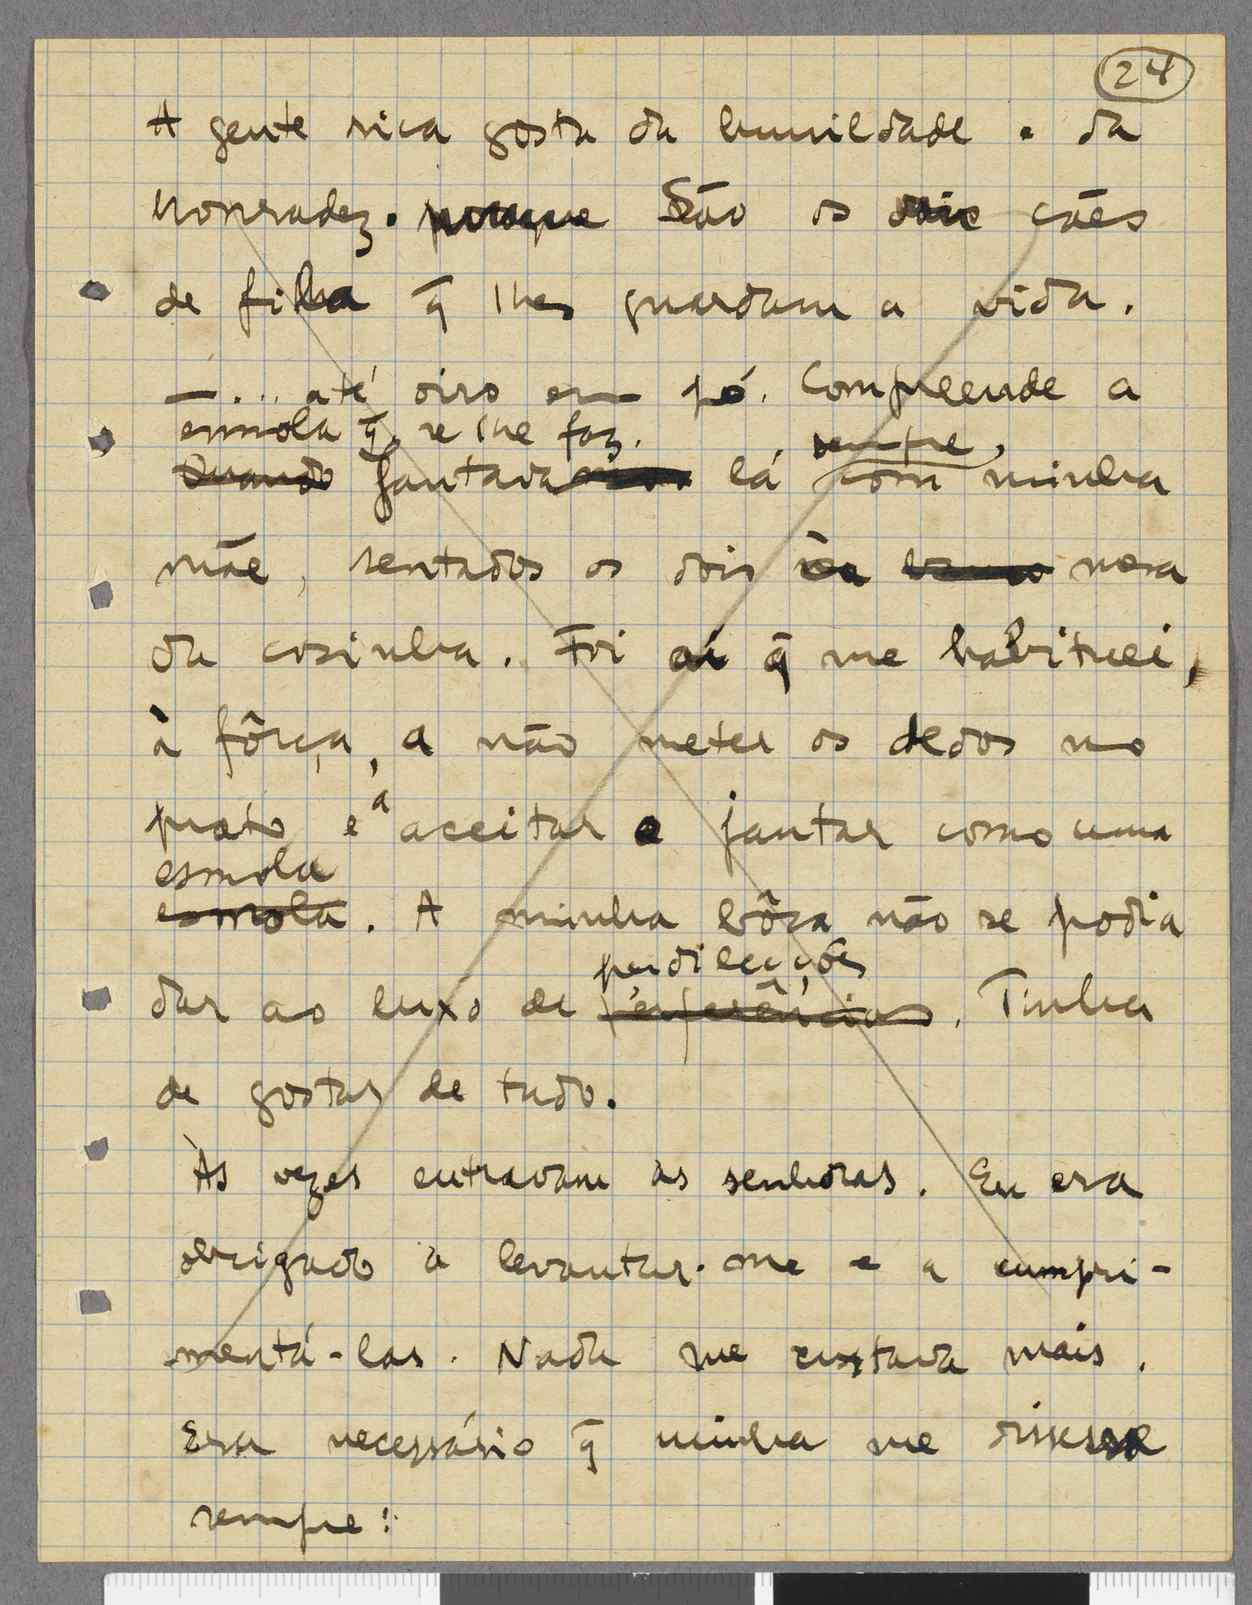 24
A gente rica gosta da humildade e da
honradez. porque São os dois cães
de fila q̄ lhes guardam a vida.
—... até oiro em pó. Compreende a
esmola q̄ se lhe faz.
sempre,
Quando Jantava lá com minha
mãe, sentados os dois na banco mesa
da cosinha. Foi aí q̄ me habituei,
à fôrça, a não meter os dedos no
prato e a aceitar o jantar como uma
esmola
esmola. A minha bôca não se podia
predilecções
dar ao luxo de preferências. Tinha
de gostar de tudo.
Às vezes entravam as senhoras. Eu era
obrigado a levantar-me e a cumpri-
mentá-las. Nada me custava mais.
Era necessário q̄ minha me dissesse
sempre: